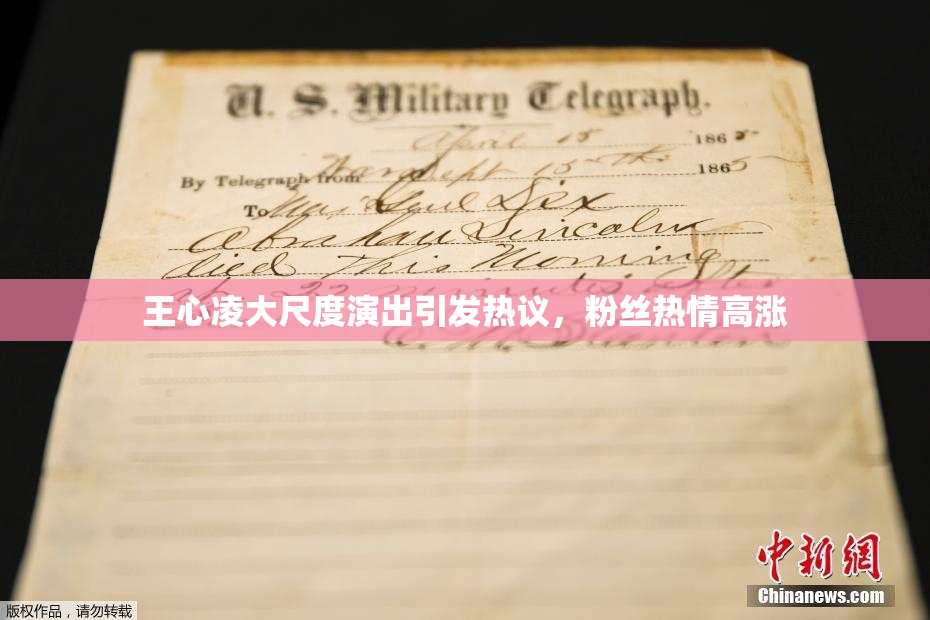 U. S. Military Telegraph.
April 15 1865
By Telegraph from War Dept 15th 1865
To Maj Genl Dix
Abraham Lincoln
died This Morning
22 minutes after
王心凌大尺度演出引发热议，粉丝热情高涨
E. M. Stanton
中新网
Chinanews.com
版权作品，请勿转载